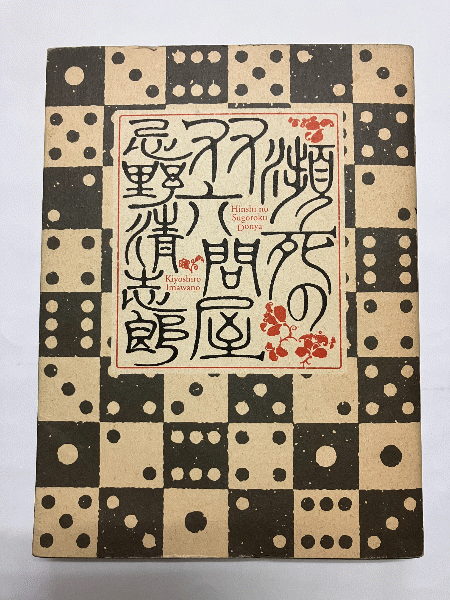 瀕死の
双六問屋
忌野清志郎
Hinshi no
Sugoroku
Donya
Kiyoshiro
Imawano